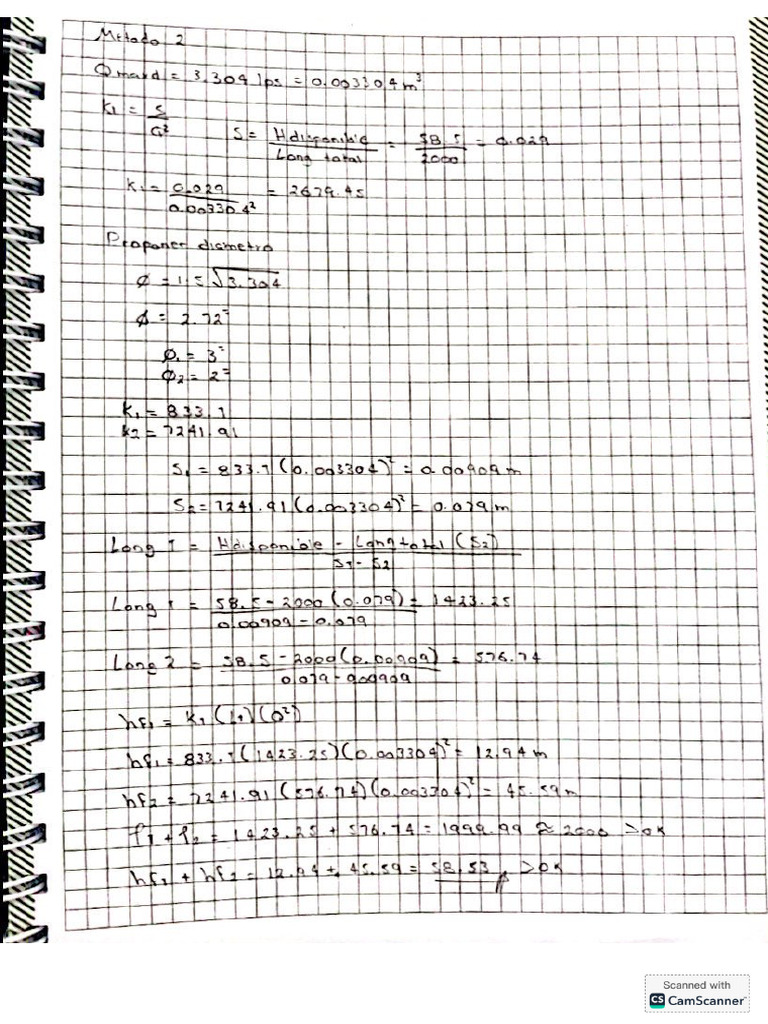 Metodo 2
Qmaxd = 3.304 lps = 0.003304 m³
K₁ = S / Q²    S = Hdisponible / Long total = 58.5 / 2000 = 0.029
K₁ = 0.029 / 0.003304² = 2679.45
Proponer diametro
Ø = 1.5 √3.304
Ø = 2.72"
Ø₁ = 3"
Ø₂ = 2"
K₁ = 833.1
K₂ = 7241.91
S₁ = 833.1 (0.003304)² = 0.00909 m
S₂ = 7241.91 (0.003304)² = 0.079 m
Long 1 = Hdisponible - Long total (S₂) / S₁ - S₂
Long 1 = 58.5 - 2000 (0.079) / 0.00909 - 0.079 = 1423.25
Long 2 = 58.5 - 2000 (0.00909) / 0.079 - 0.00909 = 576.74
hf₁ = K₁ (L₁) (Q²)
hf₁ = 833.1 (1423.25) (0.003304)² = 12.94 m
hf₂ = 7241.91 (576.74) (0.003304)² = 45.59 m
l₁ + l₂ = 1423.25 + 576.74 = 1999.99 ≈ 2000 > OK
hf₁ + hf₂ = 12.94 + 45.59 = 58.53 > OK
Scanned with
CS CamScanner